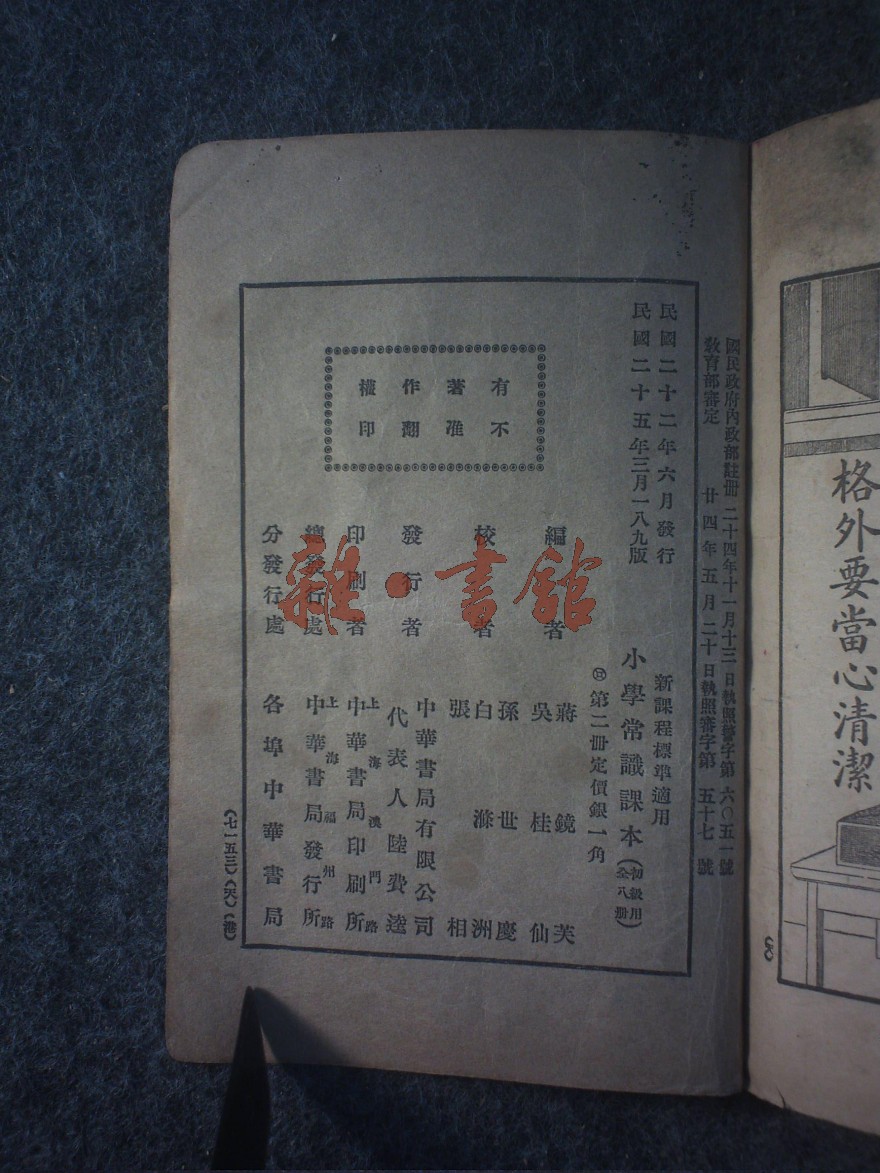 格外要當心清潔
國民政府內政部註冊 二十四年十一月十三日執照警字第六〇五一號
教育部審定 廿四年五月二十日執照審字第五十七號
民國二十二年六月發行
民國二十五年三月一八九版
新課程標準適用
小學常識課本（初級用全八册）
第二册定價銀一角
有著作權
不准翻印
編者 蔣鏡芙
吳桂仙
校者 孫世慶
白滌洲
張相
發行者 中華書局有限公司
代表人陸費逵
印刷者 上海澳門路
中華書局印刷所
總發行處 上海福州路
中華書局發行所
分發行處 各埠中華書局
（七一五三）（天）（港）
雜·書館